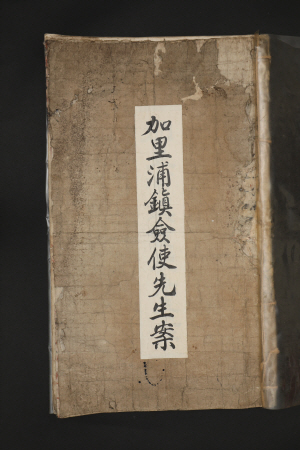 加里浦鎭僉使先生案